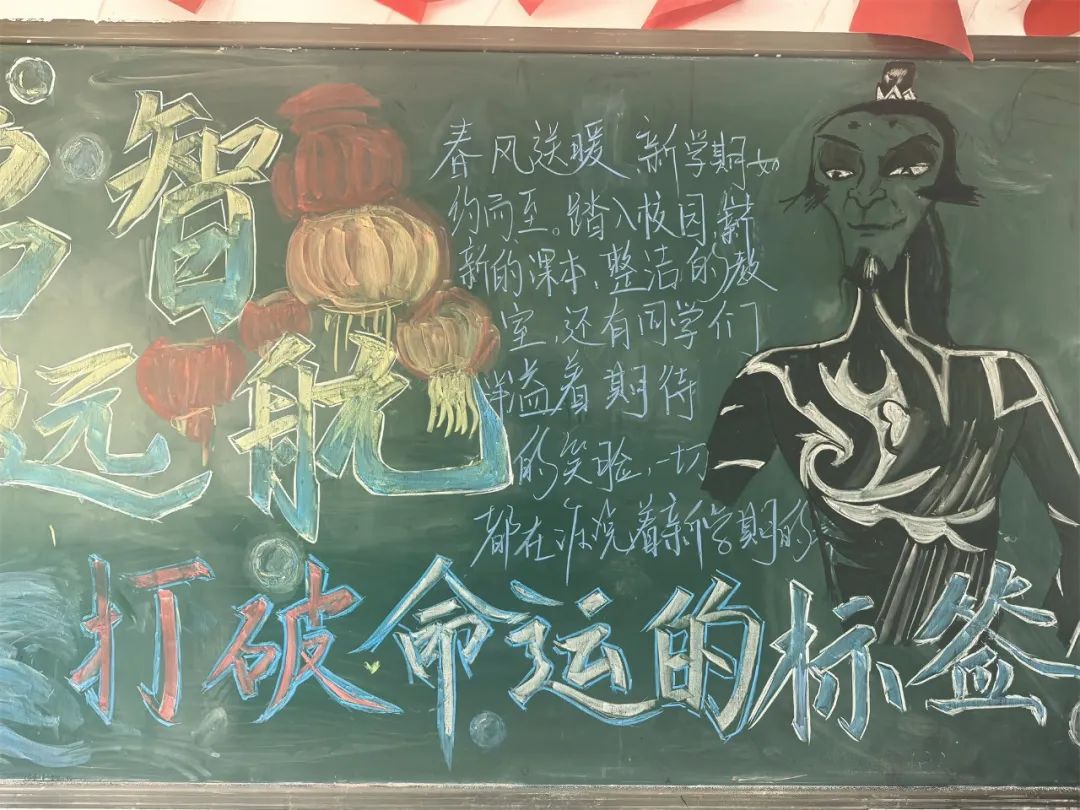 智
远航
春风送暖,新学期如
约而至。踏入校园,崭
新的课本、整洁的教
室,还有同学们
洋溢着期待
的笑脸,一切
都在诉说着新学期的
打破命运的标签